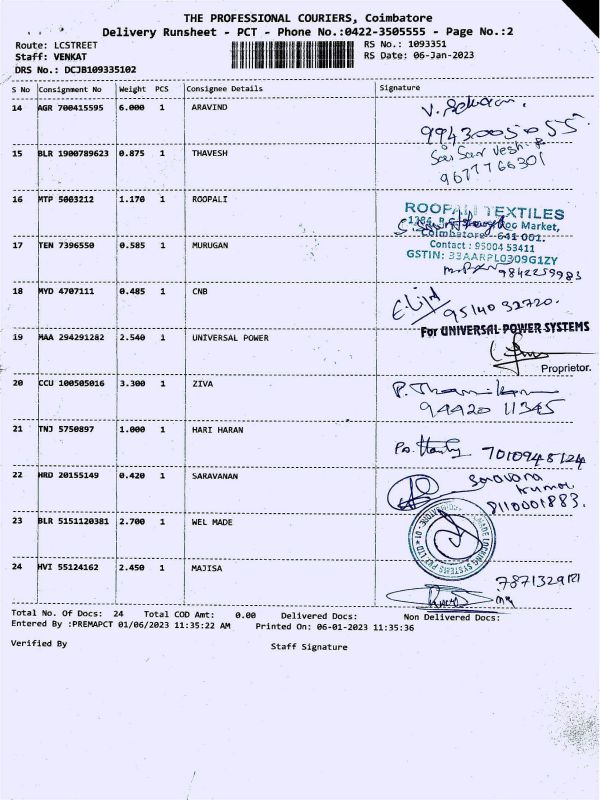 THE PROFESSIONAL COURIERS, Coimbatore
Delivery Runsheet - PCT - Phone No.:0422-3505555 - Page No.:2
Route: LCSTREET RS No.: 1093351
Staff: VENKAT RS Date: 06-Jan-2023
DRS No.: DCJB109335102
S No Consignment No Weight PCS Consignee Details Signature
14 AGR 700415595 6.000 1 ARAVIND
9943005055
15 BLR 1900789623 0.875 1 THAVESH
9677766301
16 MTP 5003212 1.170 1 ROOPALI
ROOPALI TEXTILES
Market,
Coimbatore - 641 001.
17 TEN 7396550 0.585 1 MURUGAN
Contact : 95004 53411
GSTIN: 33AARPL0309G1ZY
9842259983
18 MYD 4707111 0.485 1 CNB
9514032720.
For UNIVERSAL POWER SYSTEMS
19 MAA 294291282 2.540 1 UNIVERSAL POWER
Proprietor.
20 CCU 100505016 3.300 1 ZIVA
94420 11345
21 TNJ 5750897 1.000 1 HARI HARAN
7010948124
22 HRD 20155149 0.420 1 SARAVANAN
Saravana
kumar
8110001883.
23 BLR 5151120381 2.700 1 WEL MADE
24 HVI 55124162 2.450 1 MAJISA
Total No. Of Docs: 24 Total COD Amt: 0.00 Delivered Docs: Non Delivered Docs:
Entered By :PREMAPCT 01/06/2023 11:35:22 AM Printed On: 06-01-2023 11:35:36
Verified By Staff Signature